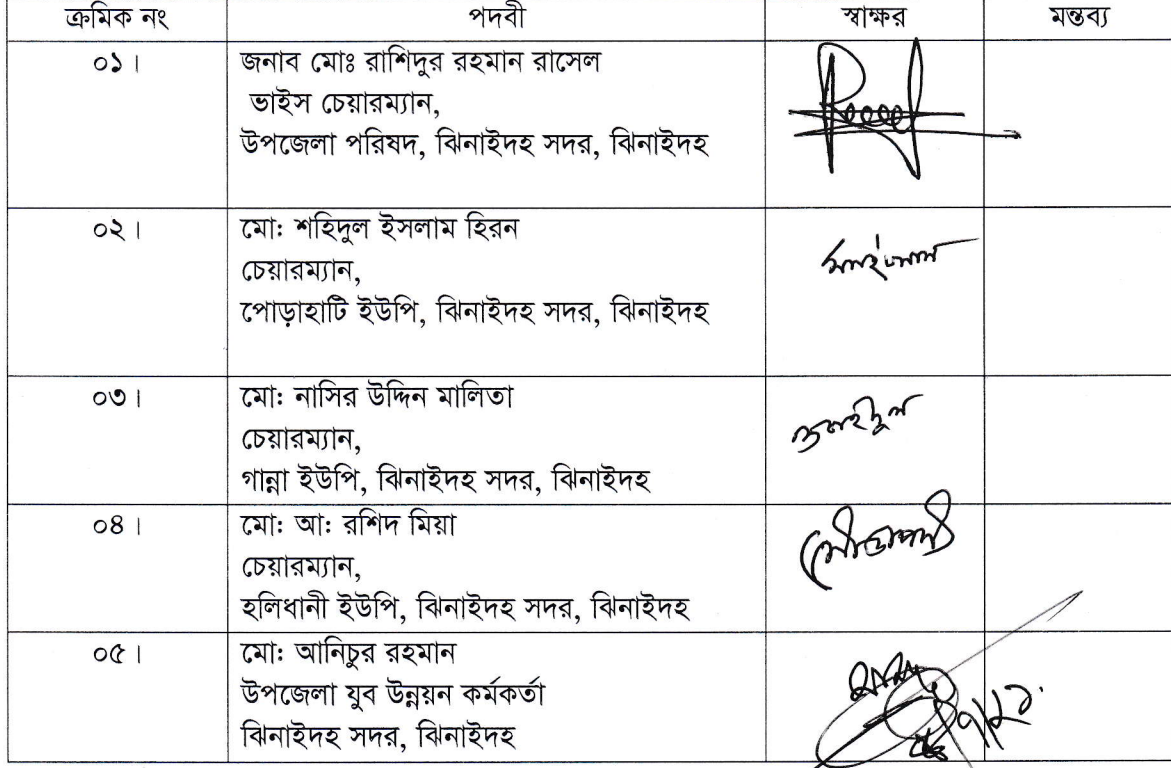 ক্রমিক নং পদবী স্বাক্ষর মন্তব্য
০১। জনাব মোঃ রাশিদুর রহমান রাসেল
ভাইস চেয়ারম্যান,
উপজেলা পরিষদ, ঝিনাইদহ সদর, ঝিনাইদহ
০২। মো: শহিদুল ইসলাম হিরন
চেয়ারম্যান,
পোড়াহাটি ইউপি, ঝিনাইদহ সদর, ঝিনাইদহ
০৩। মো: নাসির উদ্দিন মালিতা
চেয়ারম্যান,
গান্না ইউপি, ঝিনাইদহ সদর, ঝিনাইদহ
০৪। মো: আ: রশিদ মিয়া
চেয়ারম্যান,
হলিধানী ইউপি, ঝিনাইদহ সদর, ঝিনাইদহ
০৫। মো: আনিচুর রহমান
উপজেলা যুব উন্নয়ন কর্মকর্তা
ঝিনাইদহ সদর, ঝিনাইদহ